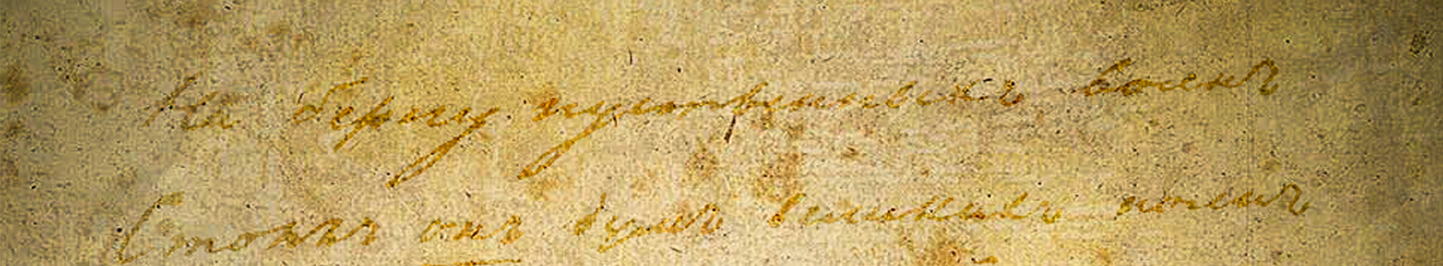 На берегу пустынныхъ волнъ
Стоялъ онъ думъ великихъ полнъ